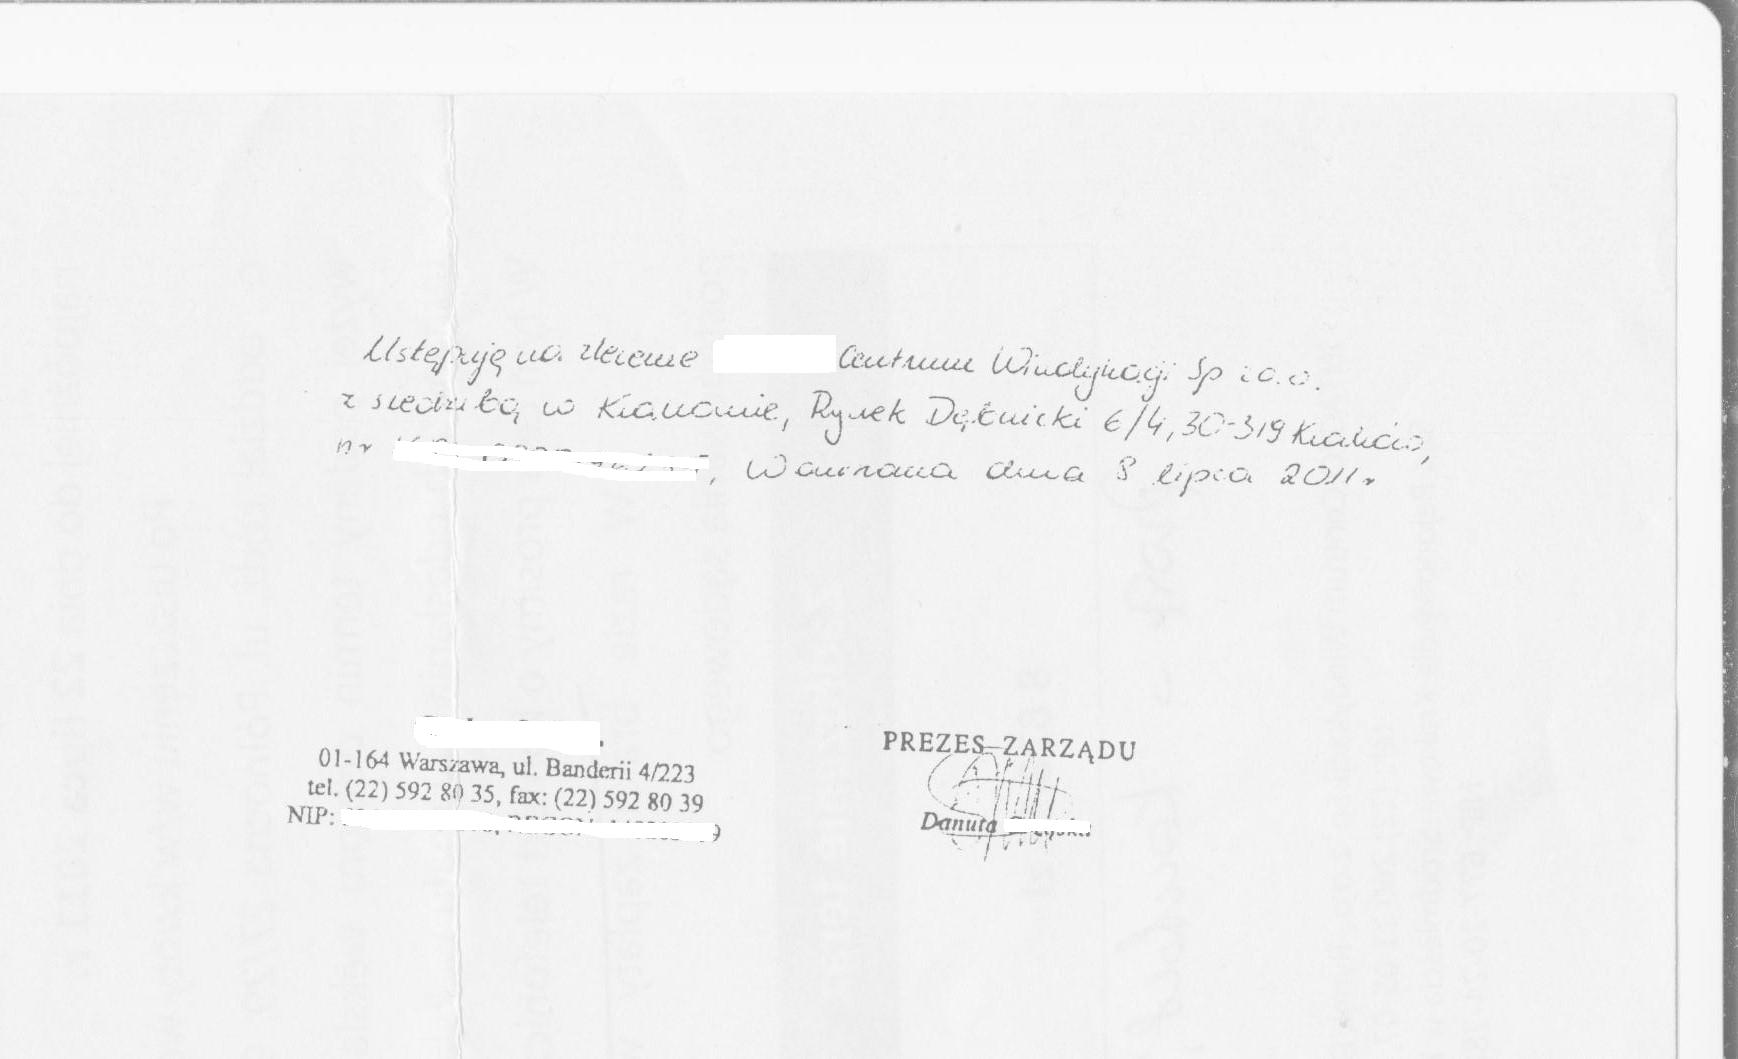 Ustępuję na zlecenie Centrum Windykacji Sp z o.o.
z siedzibą w Krakowie, Rynek Dębnicki 6/4, 30-319 Kraków,
nr , Warszawa dnia 8 lipca 2011 r
01-164 Warszawa, ul. Banderii 4/223
tel. (22) 592 80 35, fax: (22) 592 80 39
NIP:
PREZES ZARZĄDU
Danuta